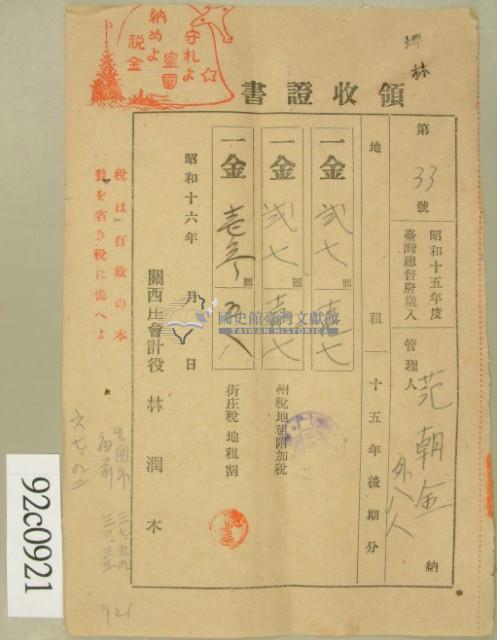 守れよ
皇國
納めよ
税金
領收證書
第33號
昭和十五年度
臺灣總督府歲入
管理人 范朝金 外八人 納
地租 十五年後期分
一金 弍七圓壱七
一金 弍七圓壱七
州税地租附加税
街庄税 地租割
昭和十六年 月 日
關西庄會計役 林潤木
税は百政の本
費を省き税に備へよ
國史館臺灣文獻館
六七、九二
92c0921
921